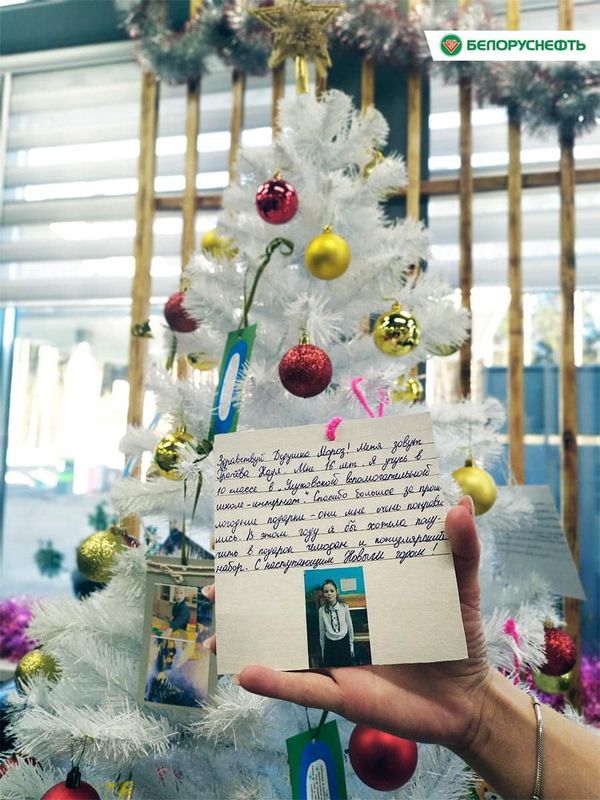 БЕЛОРУСНЕФТЬ
Здравствуй Дедушка Мороз! Меня зовут
Надя. Мне 16 лет. Я учусь в
10 классе в „
вспомогательной
школе-интернат." Спасибо большое за прош-
логодние подарки - они мне очень понрави-
лись. В этом году я бы хотела полу-
чить в подарок чемодан и канцелярский
набор. С наступающим Новым годом!